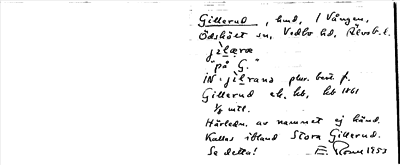 Gillerud, hmd, i Vången,
Ödskölt sn, Vedbo hd, Älvsb. l.
jìlærœ
"på G."
IN: jìlrana plur. best. f.
Gillerud ek. kb, kb 1861
1/8 mtl.
Härledn. av namnet ej känd.
Kallas ibland Stora Gillerud.
Se detta! E. 1953